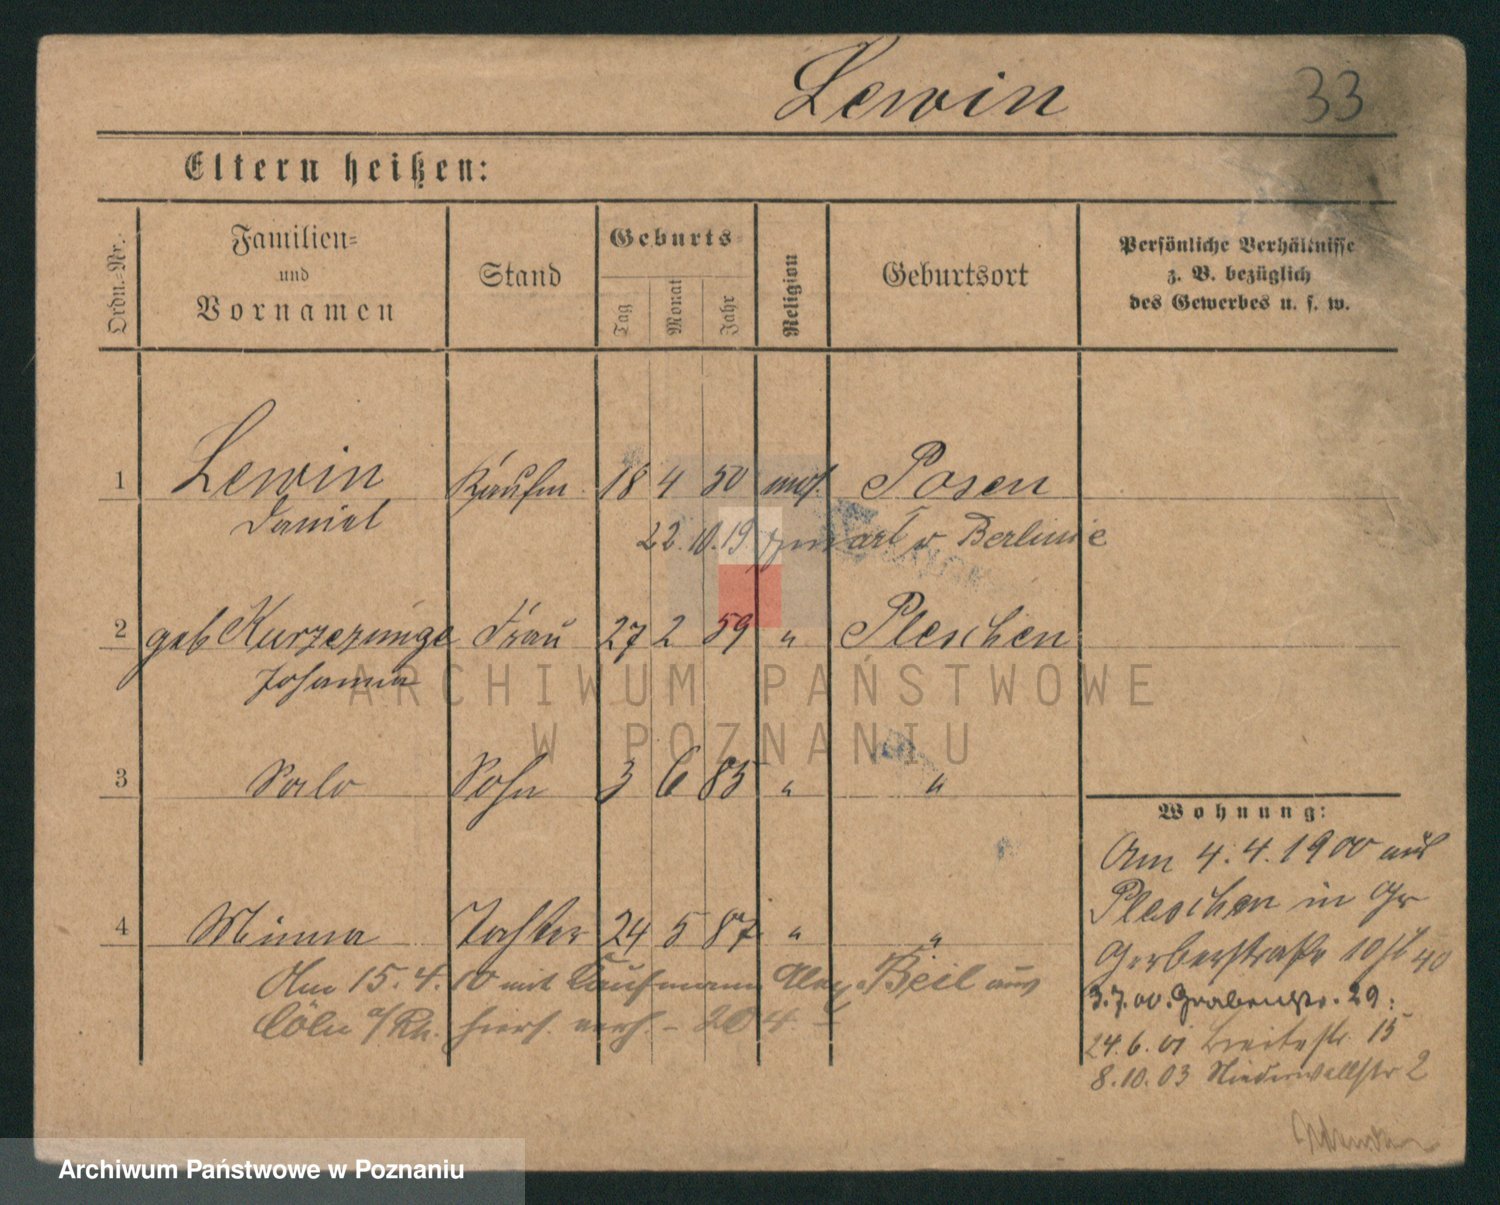 Lewin 33
Eltern heißen:
Ordn.-Nr. Familien- und Vornamen Stand Geburts- Tag Monat Jahr Religion Geburtsort Persönliche Verhältnisse z. B. bezüglich des Gewerbes u. s. w.
1 Lewin Kaufm 18 4 50 mos. Posen
Daniel
22.10.19 v Berlin
2 geb Frau 27 2 59 " Pleschen
Johanna
3 Salo Sohn 3 6 85 " "
4 Minna Tochter 24 5 87 " "
Am 15.4.10 mit Kaufmann Alex Beil aus
Cöln a/Rh. hiers. verh. - 204 -
Wohnung:
Am 4.4.1900 aus
Pleschen in Gr
Gerberstraße 10 40
3.7.00. Grabenstr. 29.
24.6.01 Breitestr. 15
8.10.03 Niederwallstr 2
ARCHIWUM PAŃSTWOWE
W POZNANIU
Archiwum Państwowe w Poznaniu